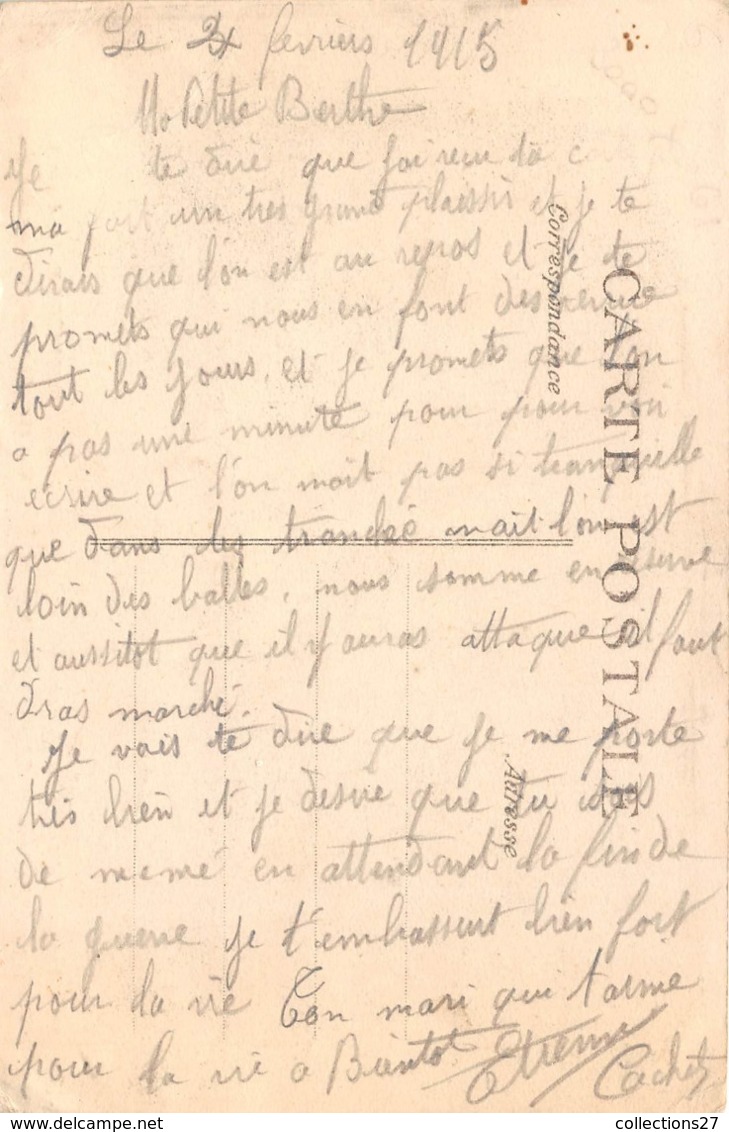 Le 24 fevriers 1915
Ma Petite Berthe
Je te dire que jai recu ta
ma fait un tres grand plaissir et je te
dirais que l'on est au repos et je te
promets qui nous en font des
tout les jours. et je promets que l'on
a pas une minute pour pour voir
ecrire et l'on mait pas si tranquille
que dans les tranché mait l'on est
loin des balles, nous somme en reserve
et aussitot que il y auras attaque il faut
dras marché.
Je vais te dire que je me porte
tres bien et je desire que tu sois
de memé en attendant la fin de
la guerre je t'embassent bien fort
pour la vie Ton mari qui t'aime
pour la vie a Biéntot Etienne
Cachet
Correspondance
CARTE POSTALE
Adresse
collections27